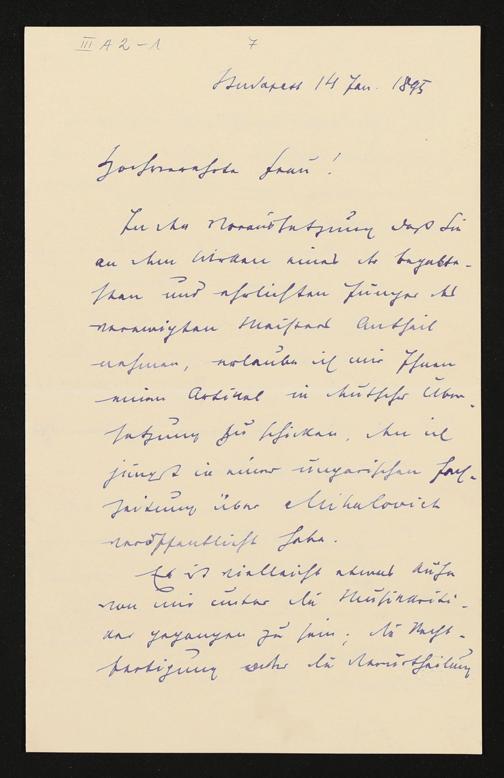 III A 2 - 1
7
Budapest 14 Jan. 1895
Hochverehrte Frau!
In der Voraussetzung daß Sie
an dem Wirken eines der begabte-
sten und ehrlichsten Jünger des
verewigten Meisters Antheil
nehmen, erlaube ich mir Ihnen
einen Artikel in deutscher Über-
setzung zu schicken, den ich
jüngst in einer ungarischen Fach-
zeitung über Mihalovich
veröffentlicht habe.
Es ist vielleicht etwas kühn
von mir unter die Musikkriti-
ker gegangen zu sein; die Recht-
fertigung oder die Verurtheilung